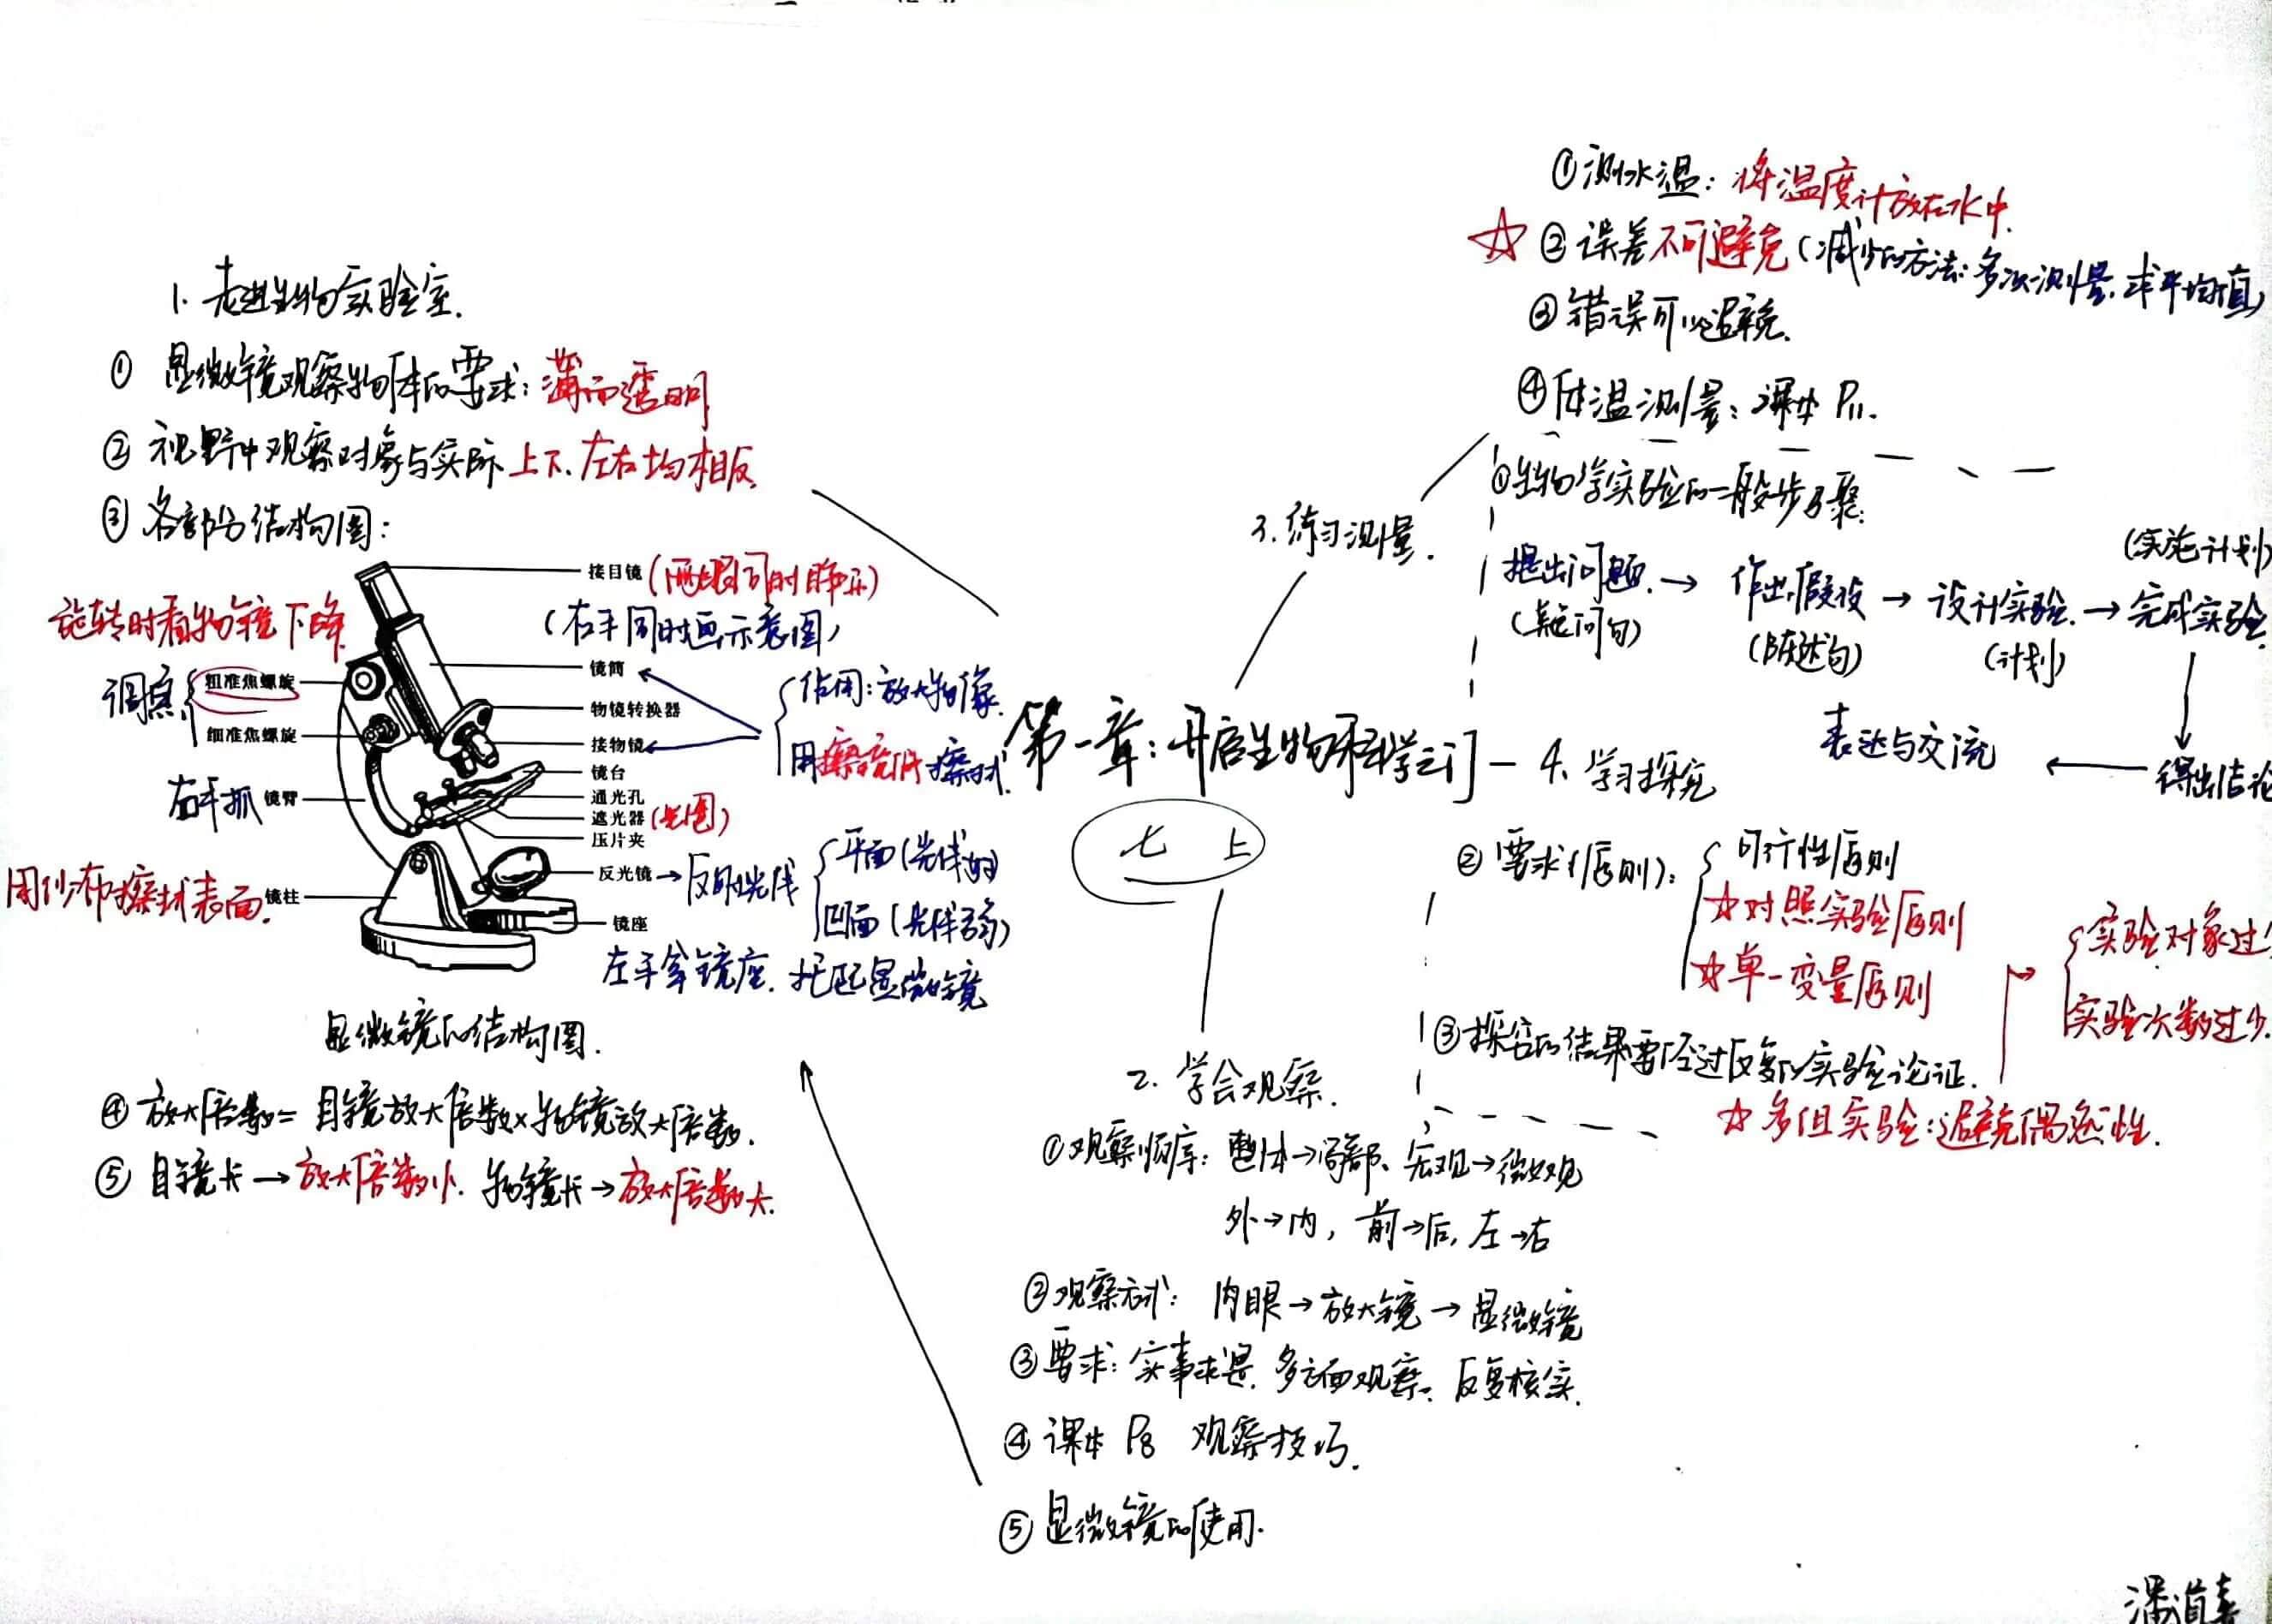 1. 走进生物实验室.
① 显微镜观察物体的要求: 薄而透明
② 视野中观察对象与实际上下、左右均相反.
③ 各部分结构图:
接目镜 (两眼同时睁开)
(右手同时画示意图)
旋转时看物镜下降.
镜筒
调焦 { 粗准焦螺旋
细准焦螺旋
物镜转换器
接物镜
{ 作用: 放大物像.
用擦镜纸擦拭
镜台
右手抓 镜臂
通光孔
遮光器 (光圈)
压片夹
反光镜 → 反射光线 { 平面 (光线强)
凹面 (光线弱)
用纱布擦拭表面. 镜柱
镜座
左手拿镜座. 托起显微镜
显微镜的结构图.
④ 放大倍数 = 目镜放大倍数 × 物镜放大倍数.
⑤ 目镜长 → 放大倍数小. 物镜长 → 放大倍数大.
第一章: 开启生物科学之门
七 上
2. 学会观察.
① 观察顺序: 整体 → 局部、宏观 → 微观
外 → 内, 前 → 后, 左 → 右
② 观察方式: 肉眼 → 放大镜 → 显微镜
③ 要求: 实事求是. 多方面观察. 反复核实.
④ 课本 P8 观察技巧.
⑤ 显微镜的使用.
3. 练习测量.
① 测水温: 将温度计放在水中.
☆ ② 误差不可避免 (减少的方法: 多次测量, 求平均值)
③ 错误可以避免.
④ 体温测量: 课本 P11.
4. 学习探究
① 生物学实验的一般步骤:
提出问题. → 作出假设 → 设计实验. → 完成实验.
(疑问句) (陈述句) (计划) (实施计划)
表达与交流 ← 得出结论
② 要求 (原则): { 可行性原则
☆ 对照实验原则
☆ 单一变量原则
③ 探究的结果要经过反复的实验论证.
☆ 多组实验: 避免偶然性.
→ { 实验对象过
实验次数过少.